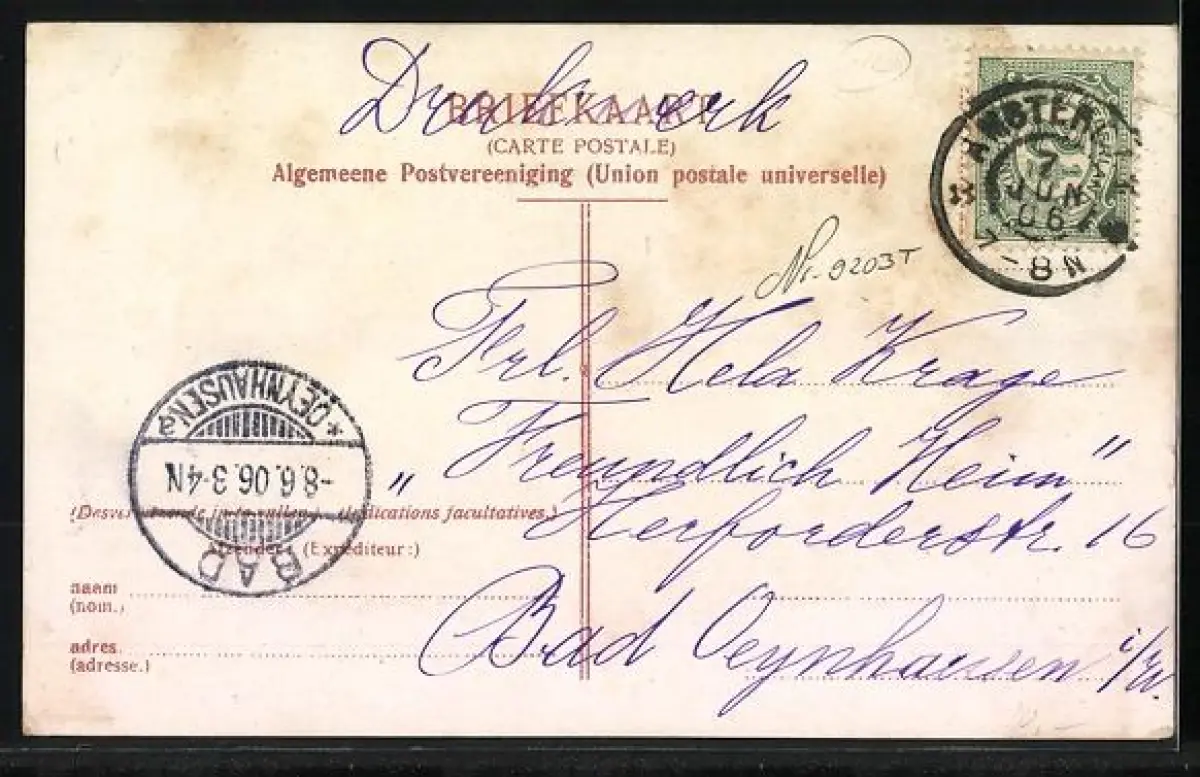 Drukwerk
BRIEFKAART
(CARTE POSTALE)
Algemeene Postvereeniging (Union postale universelle)
AMSTERDAM
7
JUN
06
7-8N
Nr. 9203T
Frl. Hela Krage
„Freundlich Heim"
Herforderstr. 16
Bad Oeynhausen i/W.
BAD
-8.6.06.3-4N
*OEYNHAUSEN.a
(indications facultatives.)
Afzender: (Expéditeur:)
naam
(nom.)
adres.
(adresse.)